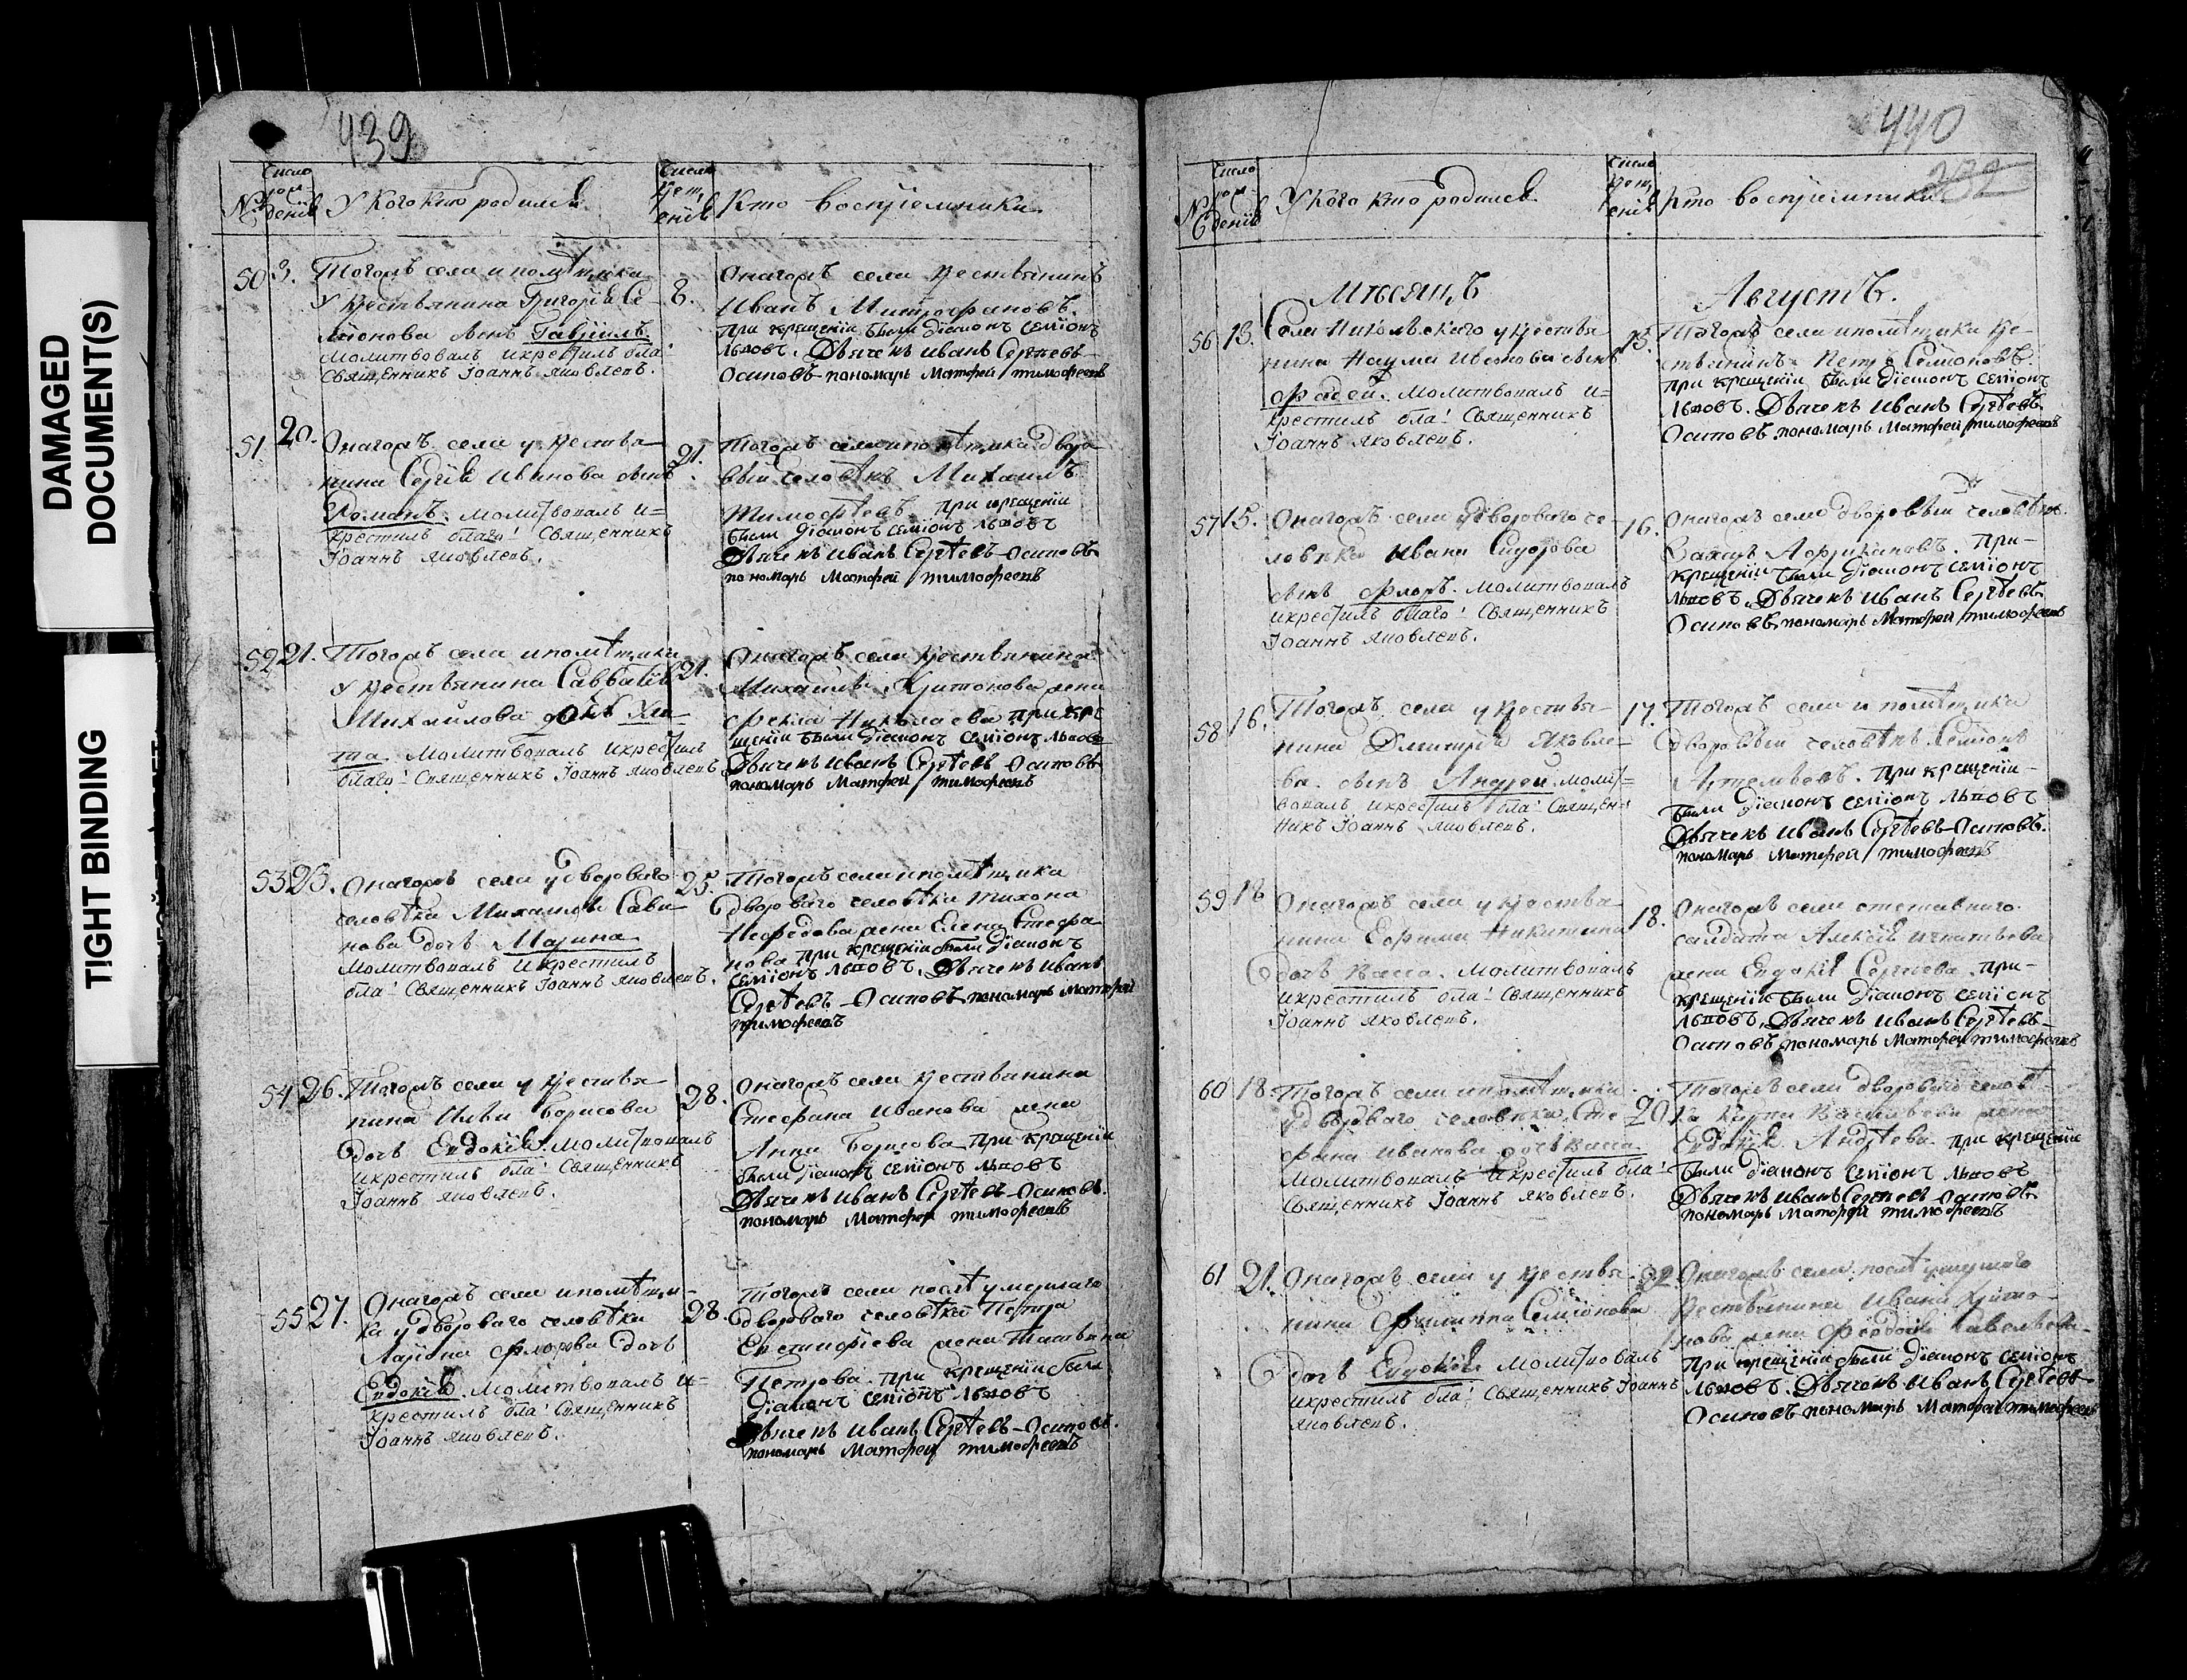 DAMAGED
DOCUMENT(S)
TIGHT BINDING
439
№
Число рож-
денiя
У кого кто родился
Число
кр
енiя
Кто воспрiемники
50 3. Тогожъ села и помѣщика
У крестьянина Григорья Се-
мiонова сынъ Гаврiилъ
молитвовалъ и крестилъ бла:
Священникъ Iоаннъ Яковлевъ.
8. Онагожъ села крестьянинъ
Иванъ Митрофановъ.
при крещенiи были дiаконъ семiонъ
львовъ. Дьячекъ иванъ Сергѣевъ
Осиповъ пономарь Матфей тимофеевъ
51 20. Онагожъ села у крестья-
нина Сергiя Иванова сынъ
Романъ. молитвовалъ и-
крестилъ благо: Священникъ
Iоаннъ Яковлевъ.
21. Тогожъ села и помѣщика дворо-
вый человѣкъ Михаилъ
Тимофѣевъ при крещенiи
были дiаконъ семiонъ львовъ
Дьячекъ иванъ Сергѣевъ Осиповъ
пономарь Матфей тимофеевъ
52 21. Тогожъ села и помѣщика
у крестьянина Савватiя
Михайлова дочь
молитвовалъ и крестилъ
благо: Священникъ Iоаннъ Яковлевъ
21. Онагожъ села крестьянина
Михайлы Харитонова жена
Фекла Николаева при кре
щенiи были дiаконъ семiонъ львовъ
Дьячекъ иванъ Сергѣевъ Осиповъ
пономарь Матфей тимофеевъ
53 23. Онагожъ села у двороваго
человѣка Михаилы Сави-
нова дочь Марина
молитвовалъ и крестилъ
бла: Священникъ Iоаннъ Яковлевъ.
25. Тогожъ села и помѣщика
двороваго человѣка Тихона
Нефедова жена Елена Стефа-
нова при крещенiи были дiаконъ
семiонъ львовъ. Дьячекъ иванъ
Сергѣевъ Осиповъ пономарь матфей
тимофеевъ
54 26. Тогожъ села у крестья-
нина Ильи Борисова
дочь Евдокiя. молитвовалъ
и крестилъ бла: Священникъ
Iоаннъ Яковлевъ.
28. Онагожъ села крестьянина
Стефана Иванова жена
Анна Борисова при крещенiи
были дiаконъ семiонъ львовъ
Дьячекъ иванъ Сергѣевъ Осиповъ.
пономарь Матфей тимофеевъ
55 27. Онагожъ села и помѣщи-
ка у двороваго человѣка
Лариона Флорова дочь
Евдокiя. молитвовалъ и-
крестилъ бла: Священникъ
Iоаннъ Яковлевъ.
28. Тогожъ села послѣ умершаго
двороваго человѣка Петра
Евстифѣева жена Татьяна
Петрова. при крещенiи были
дiаконъ семiонъ львовъ
Дьячекъ иванъ Сергѣевъ Осиповъ.
пономарь Матфей тимофеевъ
440
№
Число рож-
денiя
У кого кто родился
Число
кр
енiя
Кто воспрiемники
Мѣсяцъ Августъ.
56 13. Села Никольскаго у крестья-
нина Наума Иванова сынъ
Фадей. молитвовалъ и-
крестилъ бла: Священникъ
Iоаннъ Яковлевъ.
15. Тогожъ села и помѣщика кре-
стьянинъ Петръ Семiоновъ
при крещенiи были дiаконъ семiонъ
львовъ. Дьячекъ иванъ Сергѣевъ
Осиповъ пономарь Матфей тимофеевъ
57 15. Онагожъ села у двороваго че-
ловѣка Ивана Сидорова
сынъ Флоръ. молитвовалъ
и крестилъ благо: Священникъ
Iоаннъ Яковлевъ.
16. Онагожъ села дворовый человѣкъ
при-
крещенiи были дiаконъ семiонъ
львовъ. Дьячекъ иванъ Сергѣевъ
Осиповъ пономарь Матфей тимофеевъ
58 16. Тогожъ села у крестья-
нина Дмитрiя Яковле-
ва. сынъ Андрей. молит-
вовалъ и крестилъ бла: Священ-
никъ Iоаннъ Яковлевъ.
17. Тогожъ села и помѣщика
дворовый человѣкъ Семiонъ
Артемьевъ. при крещенiи-
были дiаконъ семiонъ львовъ
Дьячекъ иванъ Сергѣевъ Осиповъ.
пономарь Матфей тимофеевъ
59 18 Онагожъ села у крестья-
нина Ефима Никитина
дочь Васса. молитвовалъ
и крестилъ бла: Священникъ
Iоаннъ Яковлевъ.
18. Онагожъ села отставнаго
салдата Алексiя Игнатьева
жена Евдокiя Сергѣева. при-
крещенiи были дiаконъ семiонъ
львовъ. Дьячекъ иванъ Сергѣевъ
Осиповъ пономарь Матфей тимофеевъ
60 18. Тогожъ села и помѣщика
у двороваго человѣка Сте-
фана Иванова дочь Васса
молитвовалъ и крестилъ бла:
Священникъ Iоаннъ Яковлевъ.
20. Тогожъ села двороваго человѣ-
ка Васильева жена
Евдокiя Андрѣева. при крещенiи
были дiаконъ семiонъ львовъ
Дьячекъ иванъ Сергѣевъ Осиповъ
пономарь Матфей тимофеевъ
61 21. Онагожъ села у крестья-
нина Филиппа Семiонова
дочь Евдокiя молитвовалъ
и крестилъ бла: Священникъ Iоаннъ
Яковлевъ.
22. Онагожъ села послѣ умершаго
крестьянина Ивана Харито-
нова жена Федосья Савельева
при крещенiи были дiаконъ семiонъ
львовъ. Дьячекъ иванъ Сергѣевъ
Осиповъ пономарь Матфей тимофеевъ